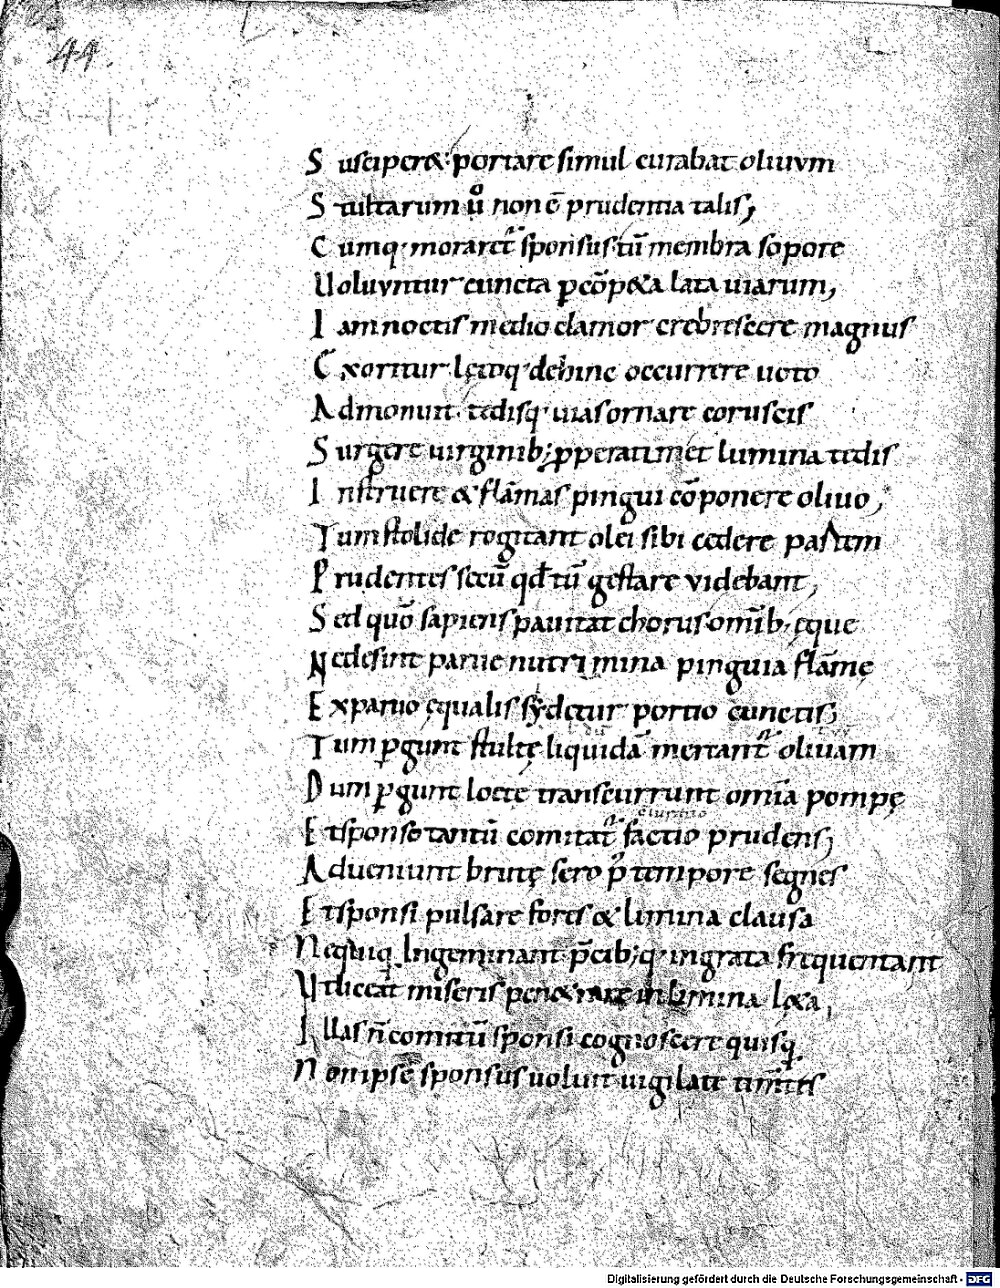 44.
S usciper&· portare simul curabat oliuvm
S tultarum ůͦ non ē prudentia talis;
C umq· moraret᷑ sponsus· tū membra sopore
U oluvntur cuncta p cōp&a lata uiarum,
I am noctis medio clamor crebrescere magnus
E xoritur· lętoq· dehinc occurrere uoto
A dmonuit· tedisq· uias ornare coruscis
S urgere uirginib; pperat· im& lumina tedis
I nstruere & flāmas pingui cōponere oliuo,
T um stolide rogitant olei sibi cedere partem
P rudentes secū qđ tū gestare videbant,
S ed quō sapiens pauitat chorus· omīb; ęque
N e desint paruę nutrimina pinguia flāmę
E x paruo ęqualis sy detur portio cunctis;
T um pgunt stultę liquidā mercant᷑ oliuam
D um pgunt loetę transcurrunt omīa pompę
E t sponso tantū comitat᷑ factio prudens;
A dueniunt brutę sero p tempore segnes
E t sponsi pulsare fores & limina clausa
N equiq Ingeminant pcib; q· ingrata frequentant
U t liceat miseris pen&rare in limina l&a,
I llas n̄ comitū sponsi cognoscere quisq
N on ipse sponsus uoluit uigilate timētes
Digitalisierung gefördert durch die Deutsche Forschungsgemeinschaft - DFG